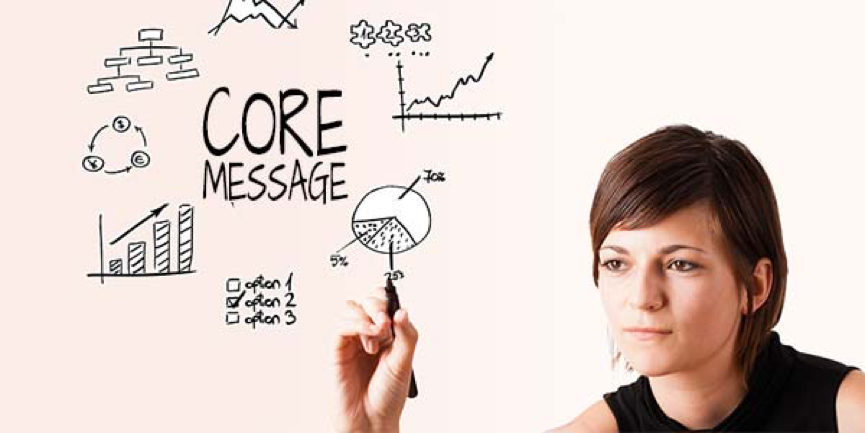 1 2 3
$
¥ €
CORE
MESSAGE
70%
5%
25%
option 1
option 2
option 3